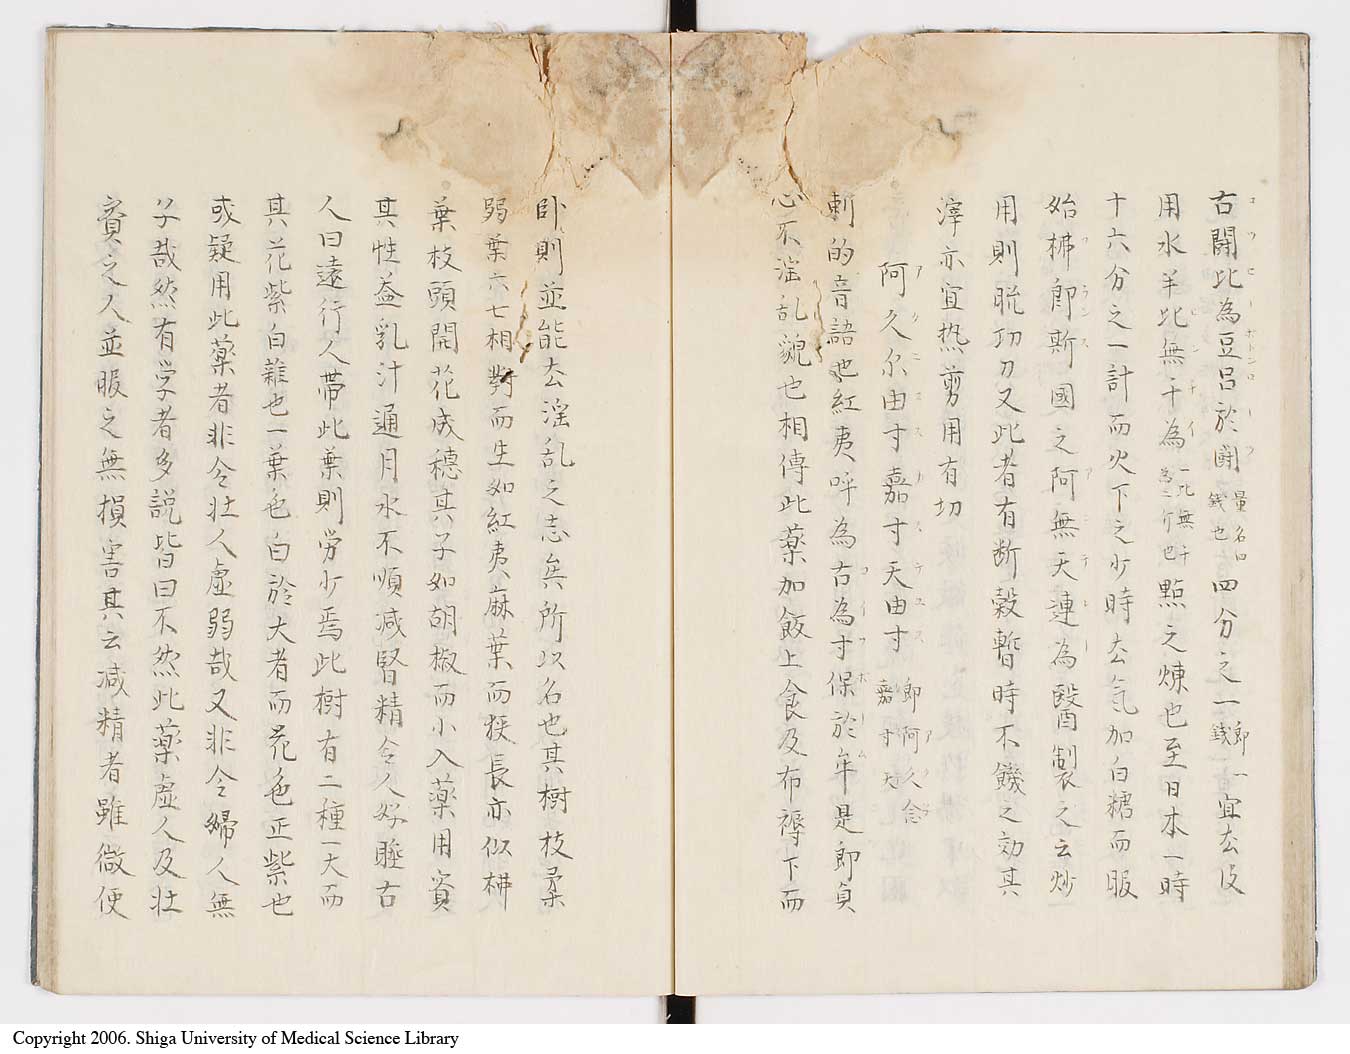 古闘比為豆呂於闘量名曰銭也四分之一郎一銭宜去皮
用水羊比無干為一比無干為三行也點之煉也至日本一時
十六分之一計而火下之少時去気加白糖而服
始梻郎斯國之阿無天連為醫製之云炒
用則聡功力又此者有断穀暫時不饑之効其
滓亦宜热剪用有切
阿久尓由寸嘉寸天由寸郎阿久念嘉寸天
斬的音語也紅夷呼為古為寸保於牟是即貞
心不淫乱貌也相傳此薬加飯上食及布褥下而
卧則並能去淫乱之志矣所以名也其樹枝柔
弱葉六七相對而生如紅夷麻葉而狭長亦似梻
葉枝頭開花成穂其子如胡椒而小入薬用實
其性益乳汁通月水不順减腎精令人好睡古
人曰遠行人帯此葉則労少焉此樹有二種一大而
其花紫白雜也一葉色白於大者而花色正紫也
或疑用此薬者非令壮人虚弱哉又非令婦人無
子哉然有学者多説皆曰不然此薬虚人及壮
實之人並服之無損害其云减精者雖微使
Copyright 2006. Shiga University of Medical Science Library